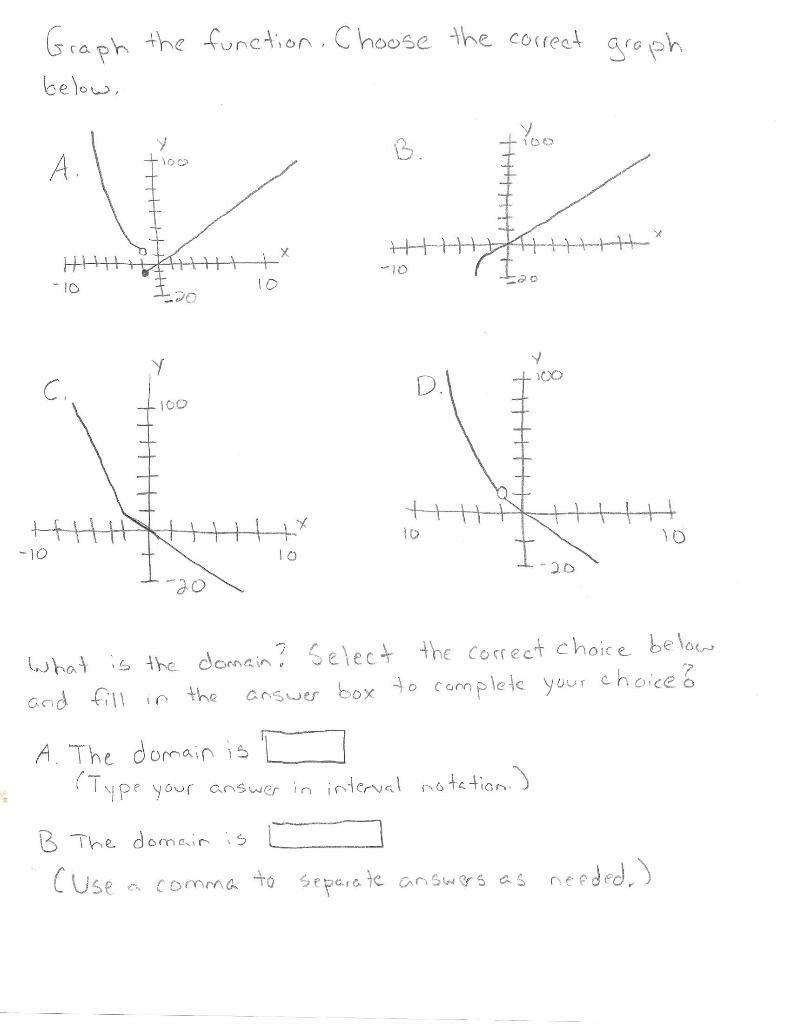 Graph the function. Choose the correct graph
below.
A.
Y
100
X
-10
10
-20
B.
Y
100
X
-10
-20
C.
Y
100
X
-10
10
-20
D.
Y
100
10
10
-20
What is the domain? Select the correct choice below
and fill in the answer box to complete your choice?
A. The domain is
(Type your answer in interval notation.)
B The domain is
(Use a comma to separate answers as needed.)